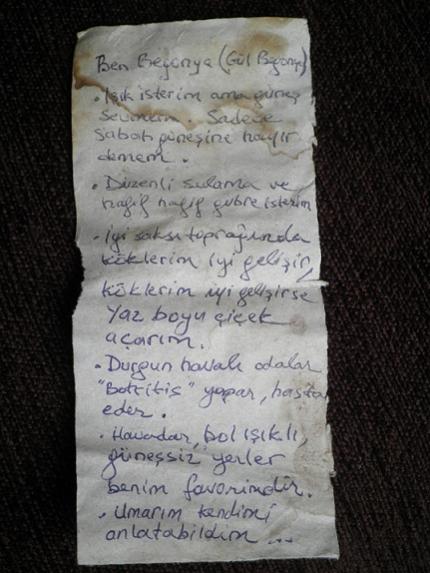 Ben Begonya (Gül Begonya)
• Işık isterim ama güneş
sevmem. Sadece
sabah güneşine hayır
demem.
• Düzenli sulama ve
hafif hafif gübre isterim
• İyi saksı toprağında
köklerim iyi gelişir,
köklerim iyi gelişirse
Yaz boyu çiçek
açarım.
• Durgun havalı odalar
"Botritis" yapar, hasta
eder.
• Havadar, bol ışıklı,
güneşsiz yerler
benim favorimdir.
• Umarım kendimi
anlatabildim ...